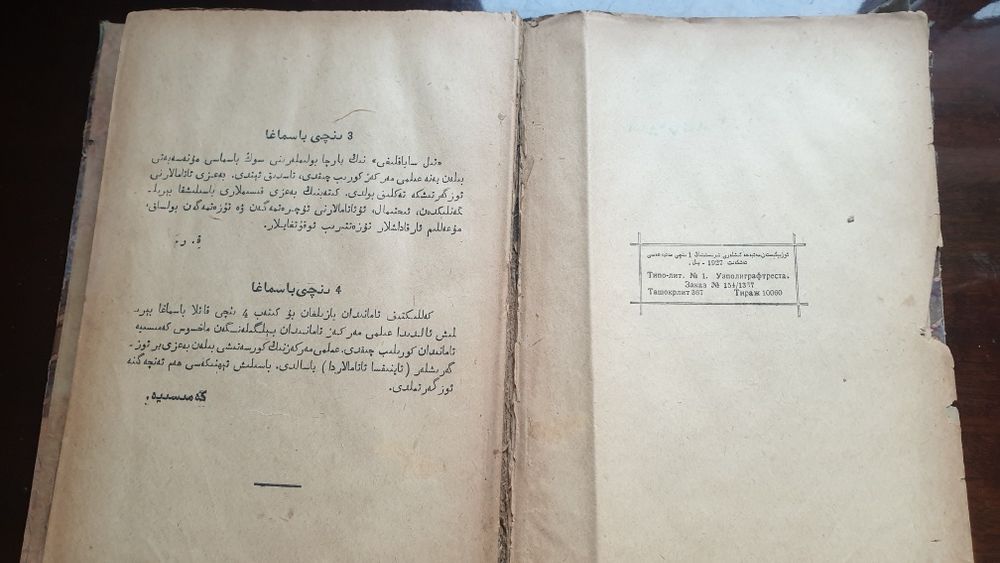 3 ىنچی باسماغا
«تىل ساباقلىغى» نىڭ بارچا بولىملەرىنى سوڭ باسماسى مۇنەسەبەتى
بىلەن يەنە عىلمى مەركەز كورىب چىقدى، تاسدىق ئېتدى. بەعزى ئاتامالارنى
ئوزگەرتىشكە تەكلىق بولدى. كىتەبنىڭ بەعزى قىسىملارى باسىلىشقا بېرىلـ
گەنلىكدەن، ئىحتىمال، ئۇئاتامالارنى ئۇچرەتمەگەن ۋە تۈزەتمەگەن بولساق،
مۇعەللىم ئارقاداشلار تۈزەتتىرىب ئوقۇتقايلار.
ق. ر.
4 ىنچی باسماغا
كەللېكتىق تامانىدان يازىلغان بۇ كىتەب 4 ىنچی قاتلا باسماغا بېرىـ
لمىش ئالدىدا عىلمى مەركەز تامانىدان بېلگىلەنگەن ماخسوس كەمىسسىيە
تامانىدان كورىلىب چىقدى. عىلمى مەركەزنىڭ كورسەتىشى بىلەن بەعزى بىر ئوزـ
گەرىشلەر (ئاينىقسا ئاتامالاردا) ياسالدى. باسىلىش تېهنىكەسى هەم ئەنچەگىنە
ئوزگەرتىلدى.
كەمىسسىيە.
1927 - يىل.
Типо-лит. № 1. Узполиграфтреста.
Заказ № 154/1377
Ташокрлит 367 Тираж 10060